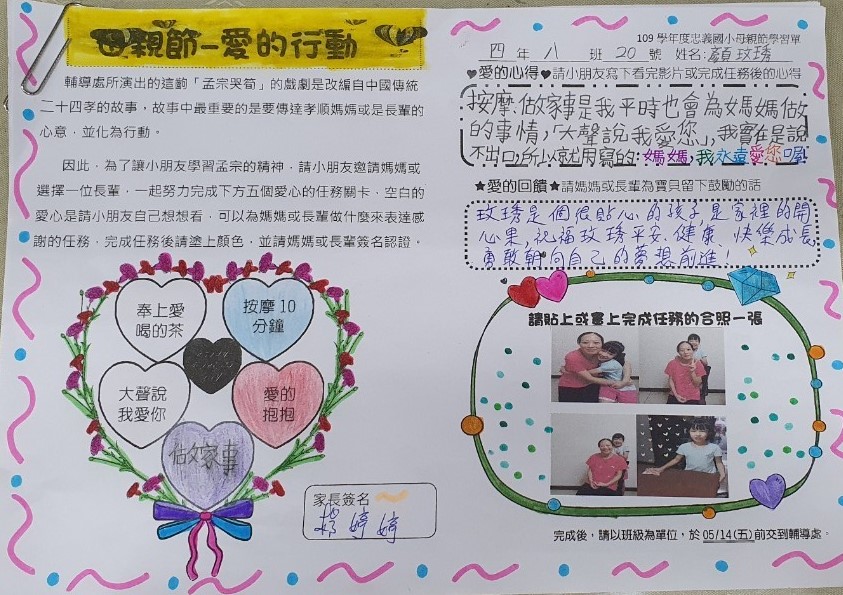 母親節–愛的行動
輔導處所演出的這齣「孟宗哭筍」的戲劇是改編自中國傳統
二十四孝的故事，故事中最重要的是要傳達孝順媽媽或是長輩的
心意，並化為行動。
因此，為了讓小朋友學習孟宗的精神，請小朋友邀請媽媽或
選擇一位長輩，一起努力完成下方五個愛心的任務關卡，空白的
愛心是請小朋友自己想想看，可以為媽媽或長輩做什麼來表達感
謝的任務，完成任務後請塗上顏色，並請媽媽或長輩簽名認證。
奉上愛
喝的茶
按摩 10
分鐘
大聲說
我愛你
愛的
抱抱
做家事
家長簽名
楊婷婷
109 學年度忠義國小母親節學習單
四 年 八 班 20 號 姓名:顏玟琇
♥愛的心得♥請小朋友寫下看完影片或完成任務後的心得
按摩、做家事是我平時也會為媽媽做
的事情,「大聲說我愛您」,我實在是說
不出口,所以就用寫的:媽媽,我永遠愛您喔
★愛的回饋★請媽媽或長輩為寶貝留下鼓勵的話
玟琇是個很貼心的孩子是家裡的開
心果,祝福玟琇平安、健康、快樂成長
勇敢朝向自己的夢想前進!
請貼上或畫上完成任務的合照一張
完成後，請以班級為單位，於 05/14(五)前交到輔導處。